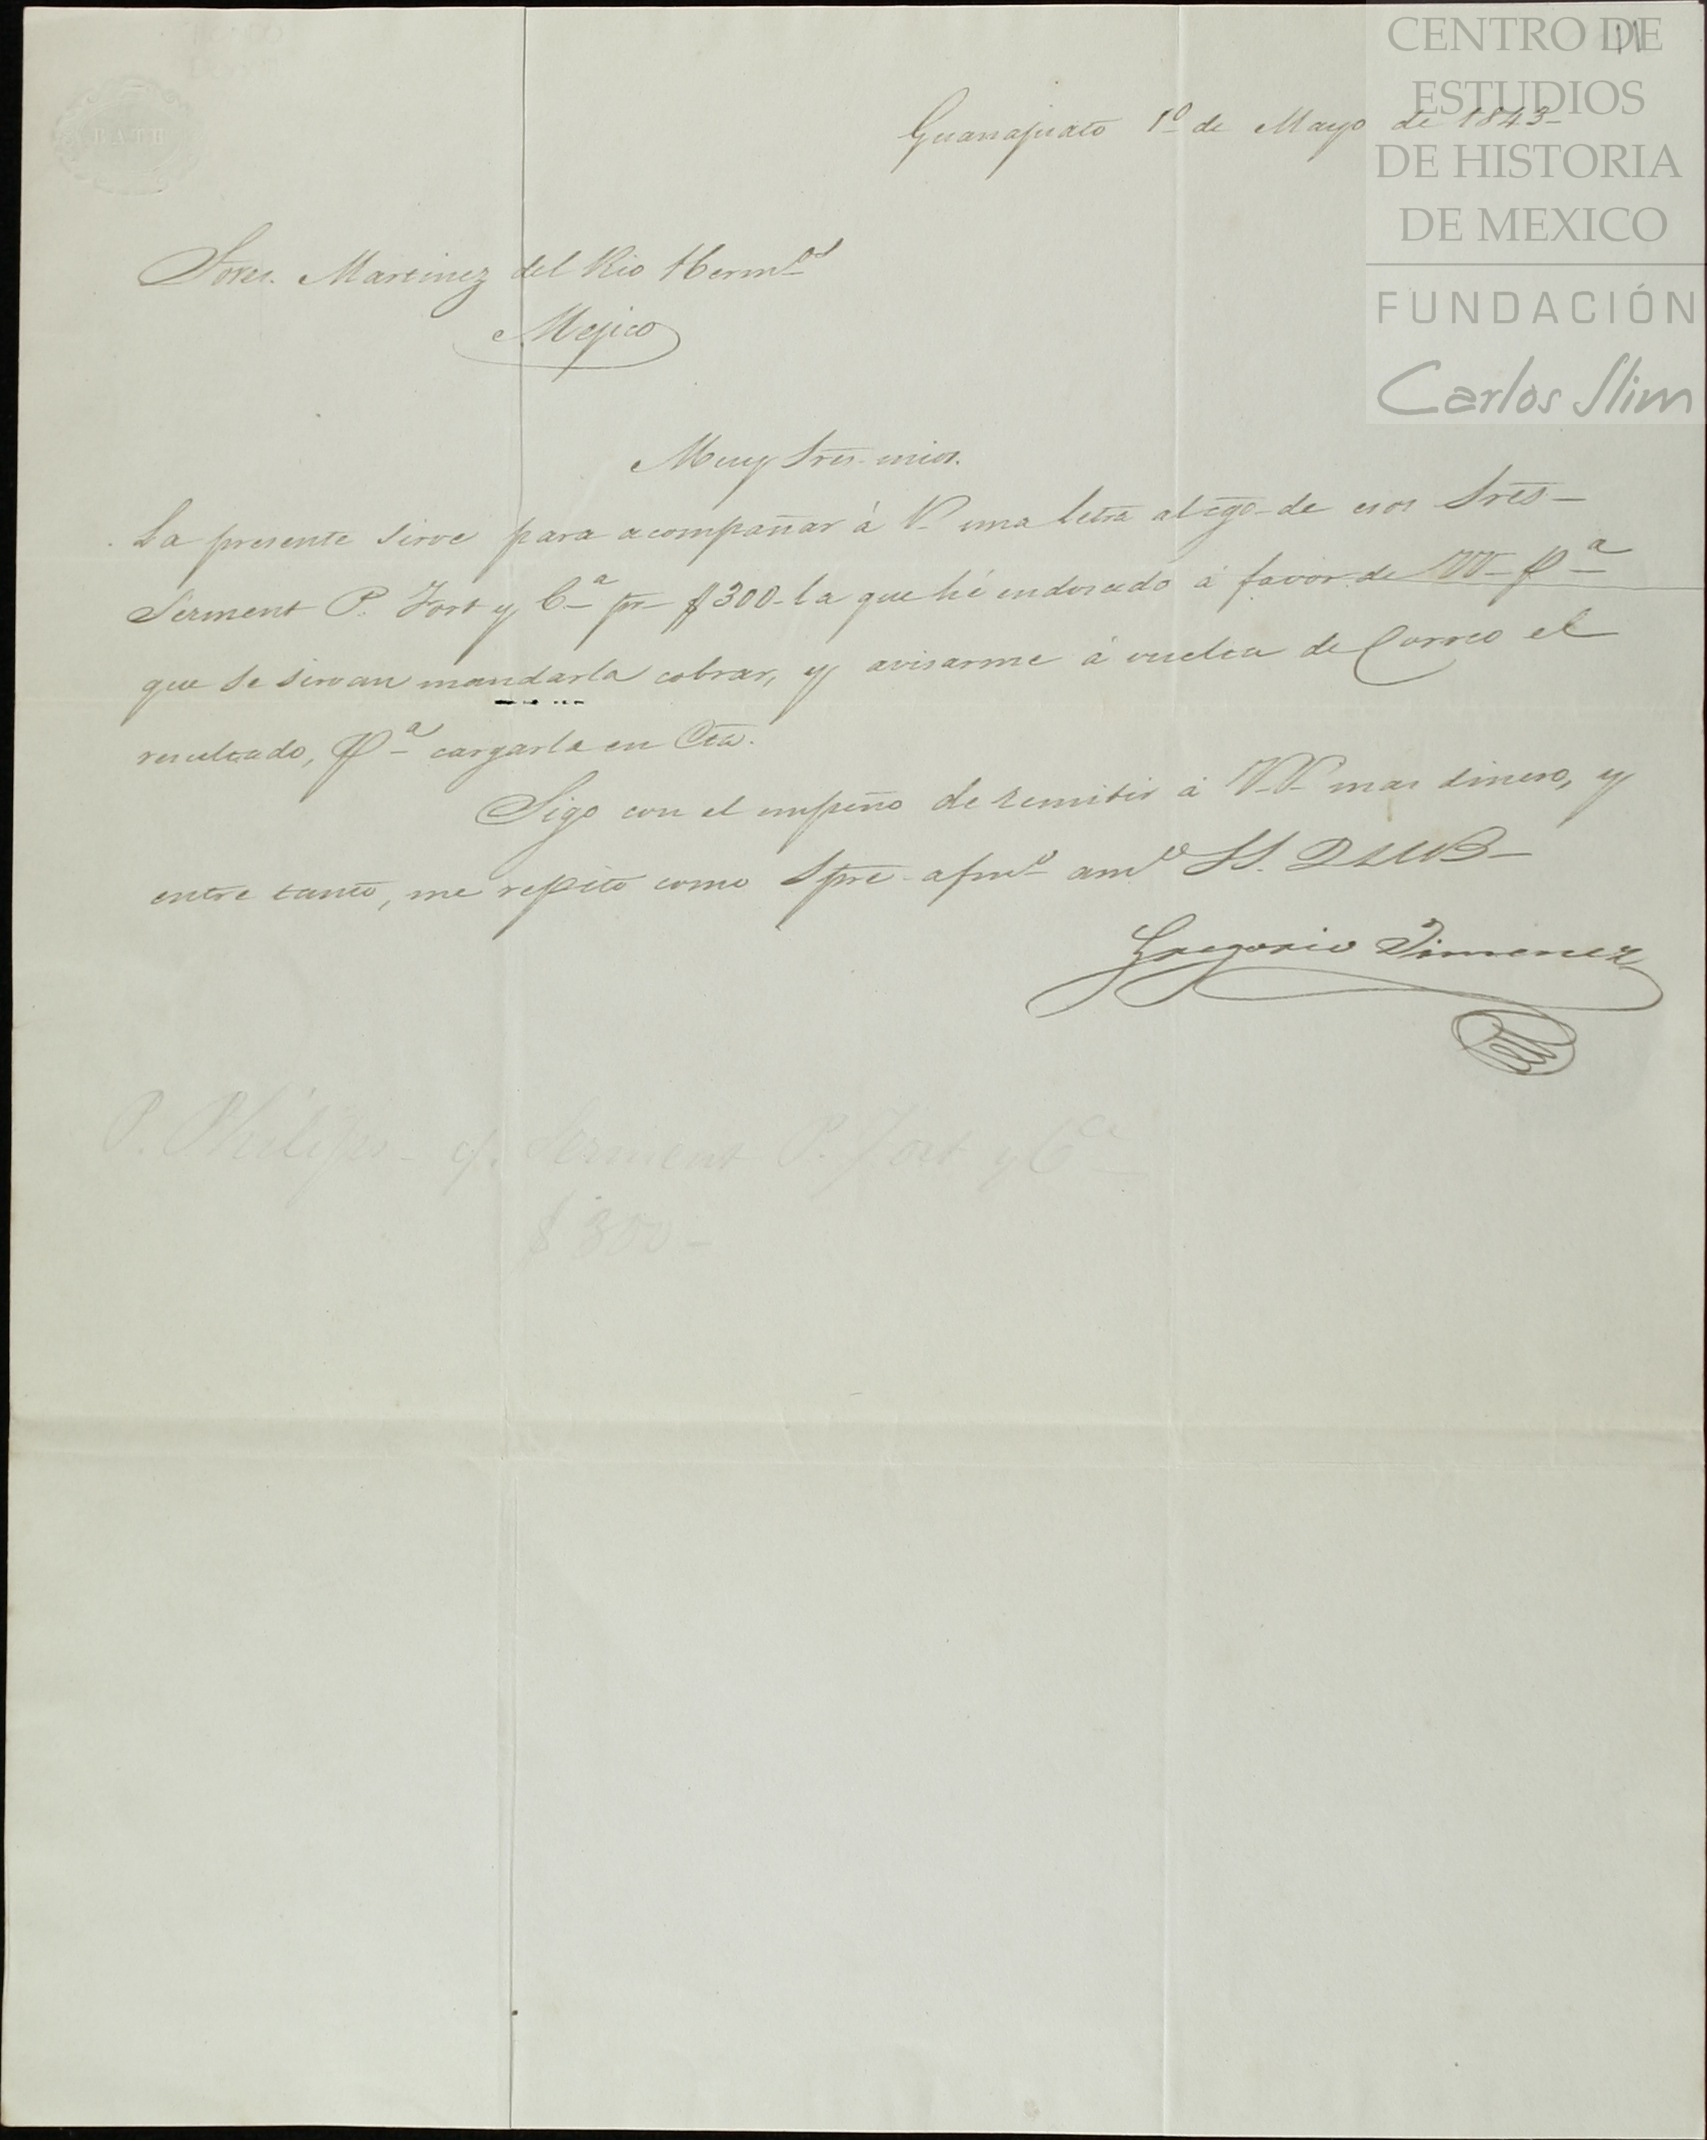 11
CENTRO DE
ESTUDIOS
DE HISTORIA
DE MEXICO
FUNDACIÓN
Carlos Slim
BATH
Guanajuato 1º de Mayo de 1843
Sores. Martinez del Rio Hermos
Mejico
Muy Sres. mios.
La presente sirve para acompañar á V. una letra al cgo. de esos Sres
Serment P. Fort y Ca. pr. $300 la que hé endosado á favor de VV. pa.
que se sirvan mandarla cobrar, y avisarme á vuelta de Correo el
resultado, pa. cargarla en Cta.
Sigo con el empeño de remitir á V.V. mas dinero, y
entre tanto, me repito como Spre. afmo. amo. SS.
Gregorio Jimenez
P. Philips c/. Serment P. Fort y Ca.
$300